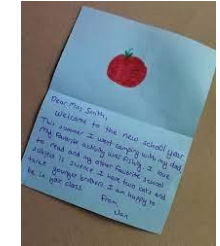 Dear Mrs. Smith,
Welcome to the new school year.
This summer I went camping with my dad.
My favorite activity was fishing. I love
to read and my other favorite school
subject is science. I have two cats and
twin younger brothers. I am happy to
be in your class.
From,
Jan